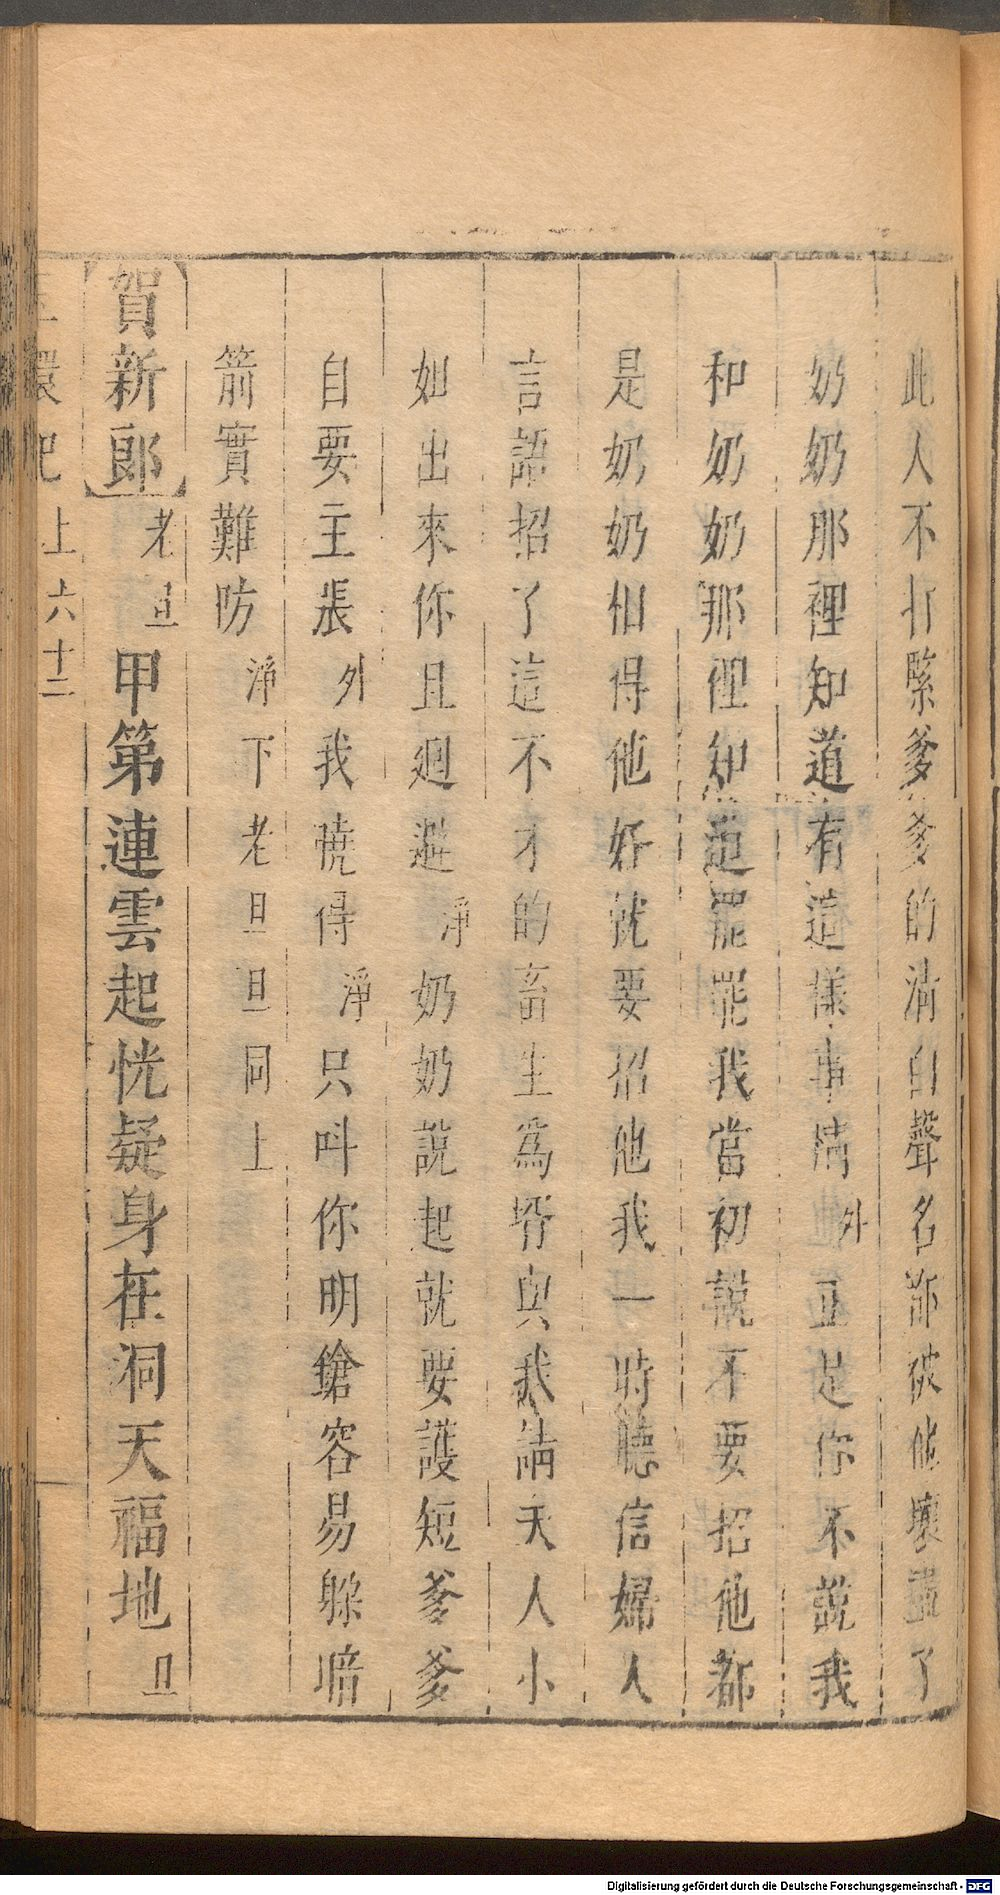 此人不打緊爹爹的淸白聲名都被他壞盡了
奶奶那裡知道有這樣事情外正是你不說我
和奶奶那裡知道罷罷我當初說不要招他都
是奶奶相得他好就要招他我一時聽信婦人
言語招了這不才的畜生爲壻與我請夫人小
如出來你且廻避淨奶奶說起就要護短爹爹
自要主張外我曉得淨只叫你明鎗容易躱暗
箭實難防淨下老旦旦同上
【賀新郎】老旦甲第連雲起恍疑身在洞天福地旦
玉環記上六十二
Digitalisierung gefördert durch die Deutsche Forschungsgemeinschaft - DFG